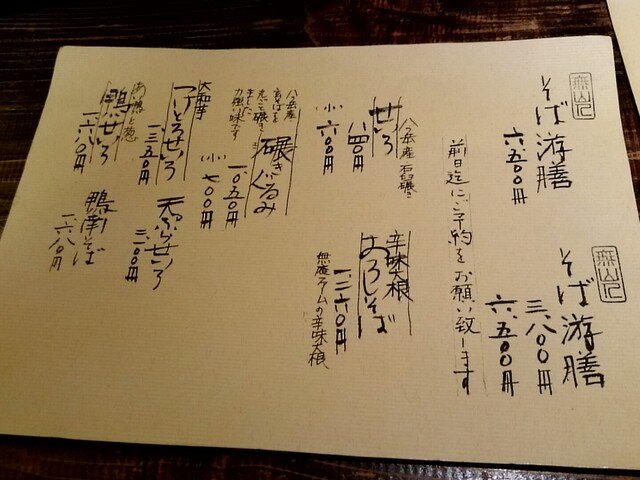 無山
そば游膳
六、五〇〇円
無山
そば游膳
三、八〇〇円
六、五〇〇円
前日迄にご予約をお願い致します
八ヶ岳産 石臼碾き
せいろ
八四〇円
小 六〇〇円
辛味大根
おろしそば
一、二六〇円
無庵ファームの辛味大根
碾きぐるみ
八ヶ岳産
玄そばを
丸ごと碾き
ました
力強い味です
一、〇五〇円
小 七〇〇円
大和芋
つけとろせいろ
一、三五〇円
天ぷらせいろ
二、一〇〇円
あい鴨と葱
鴨せいろ
一、六八〇円
鴨南そば
一、六八〇円